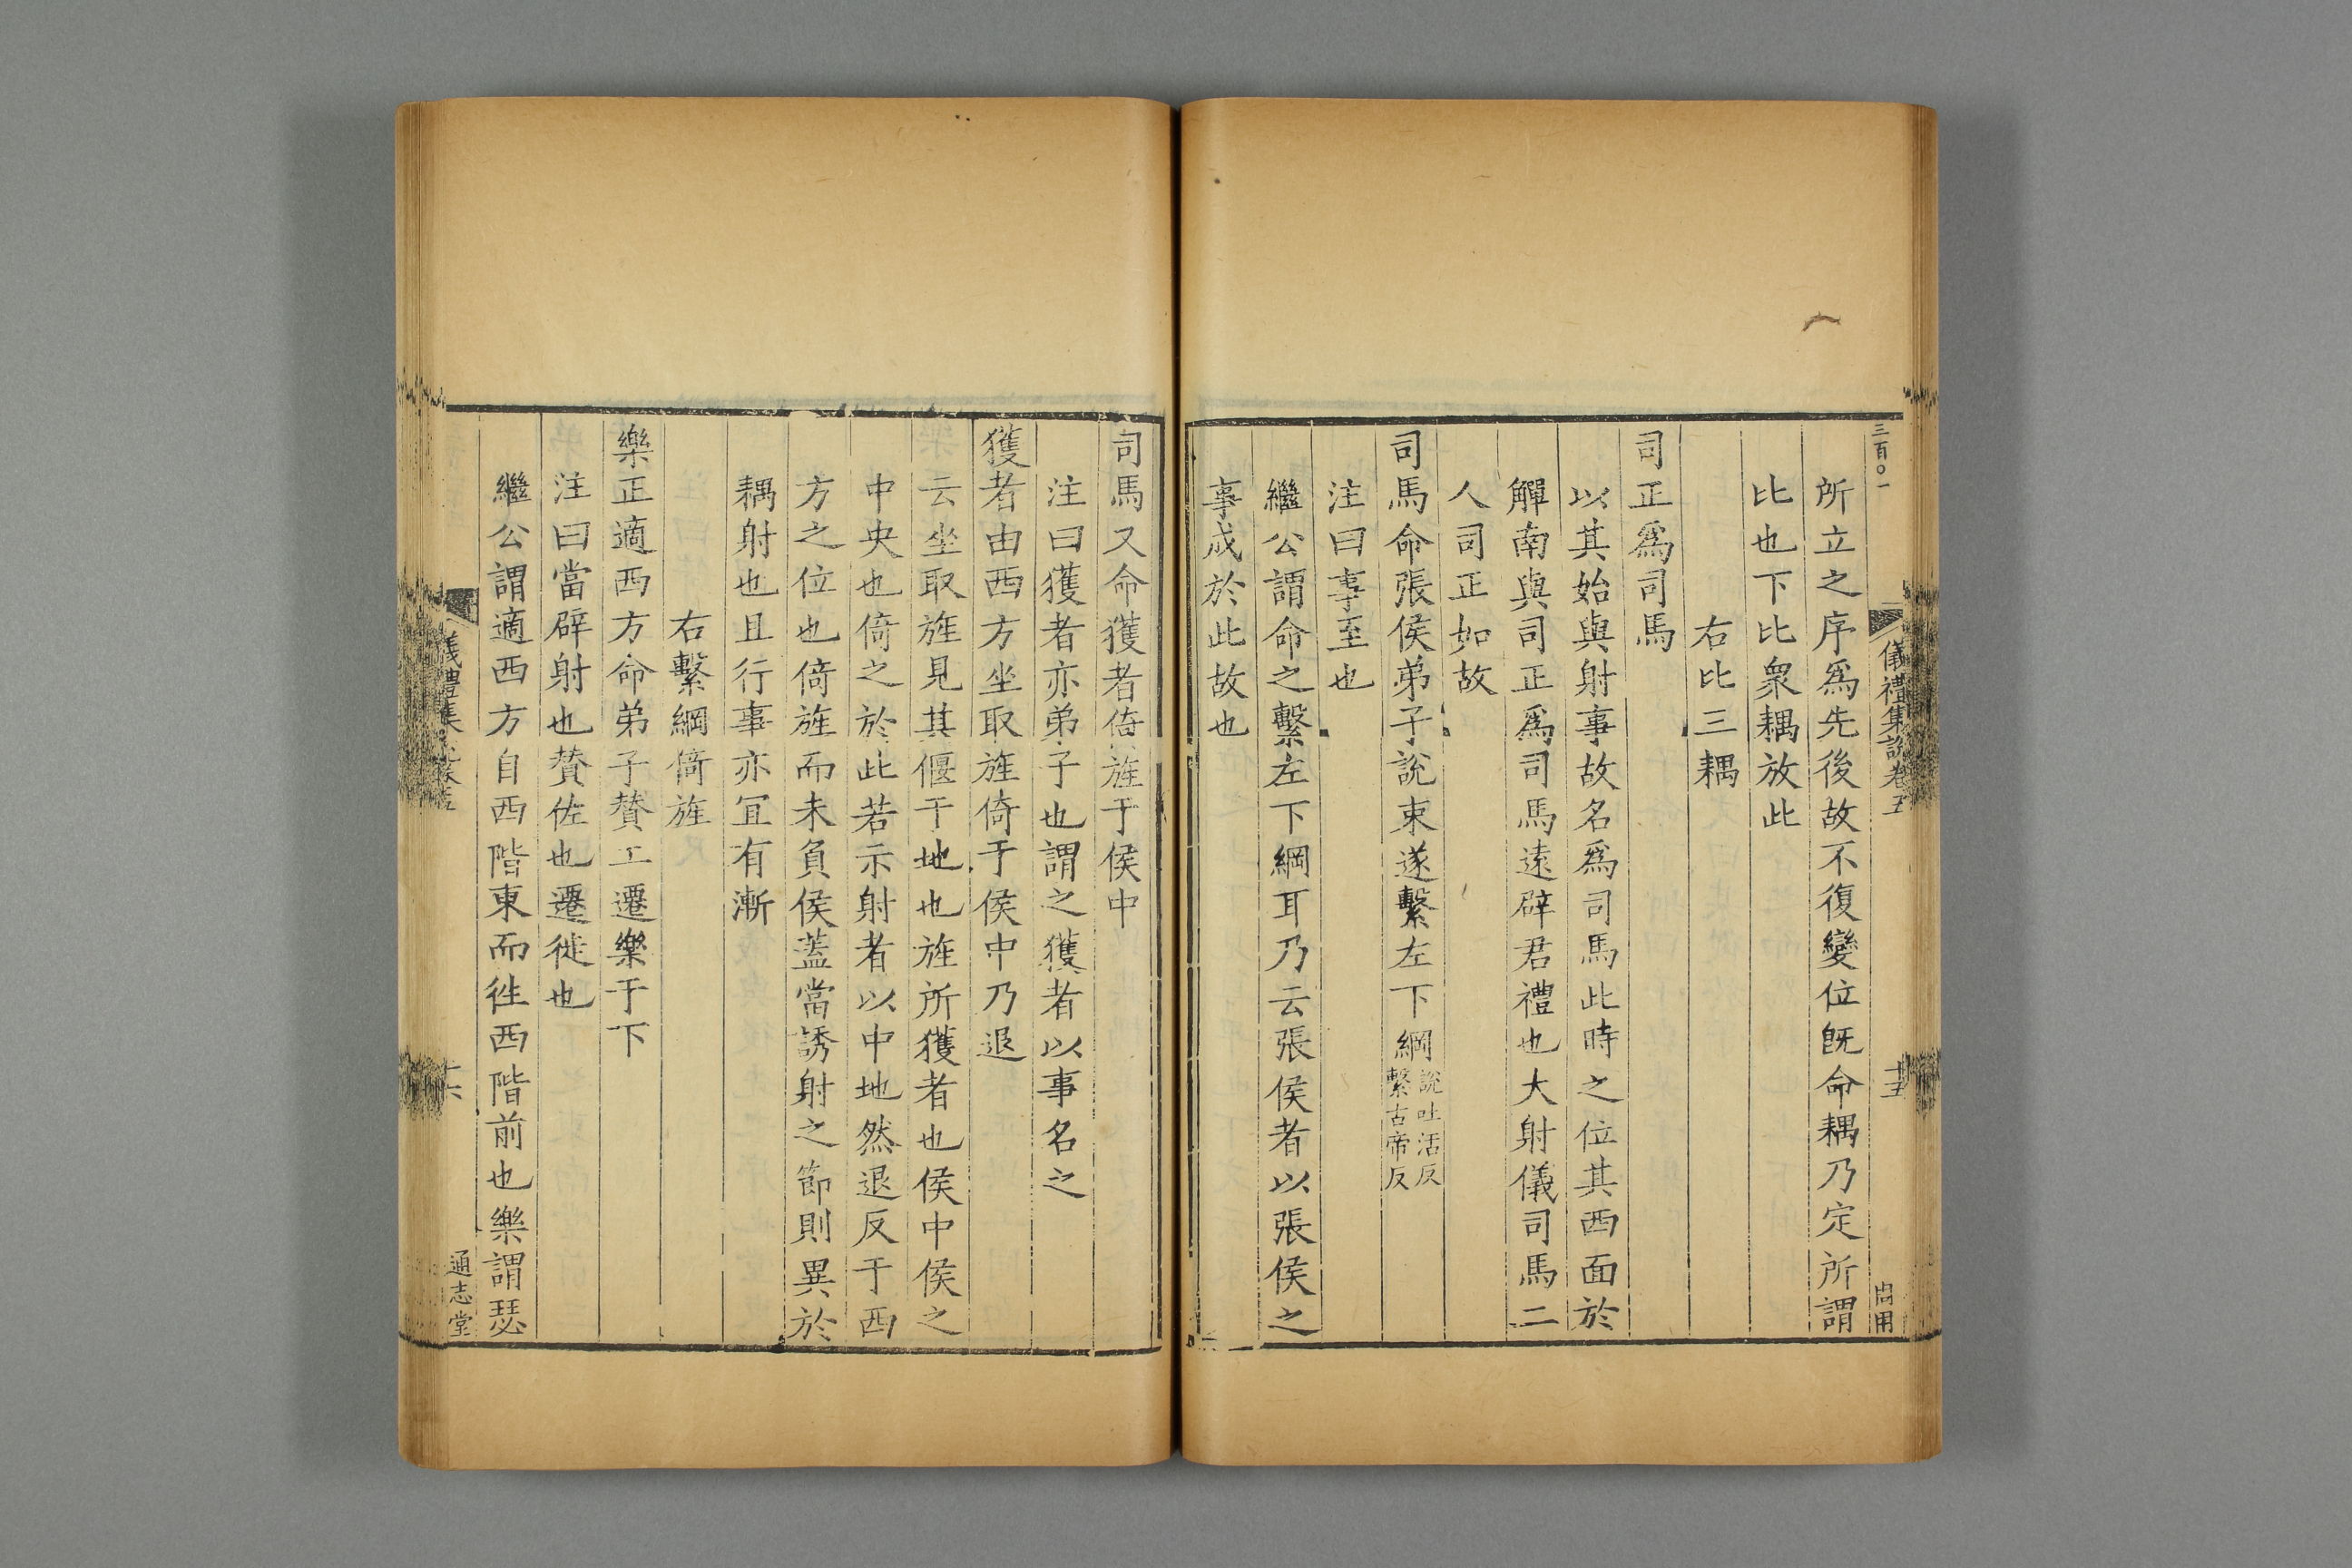 三百〇一
儀禮集說卷五
十五
所立之序爲先後故不復變位旣命耦乃定所謂
比也下比衆耦放此
右比三耦
司正爲司馬
以其始與射事故名爲司馬此時之位其西面於
觶南與司正爲司馬遠辟君禮也大射儀司馬二
人司正如故
司馬命張侯弟子說束遂繫左下綱
說吐活反
繫古帝反
注曰事至也
繼公謂命之繫左下綱耳乃云張侯者以張侯之
事成於此故也
司馬又命獲者倚旌于侯中
注曰獲者亦弟子也謂之獲者以事名之
獲者由西方坐取旌倚于侯中乃退
云坐取旌見其偃于地也旌所獲者也侯中侯之
中央也倚之於此若示射者以中地然退反于西
方之位也倚旌而未負侯蓋當誘射之節則異於
耦射也且行事亦宜有漸
右繫綱倚旌
樂正適西方命弟子贊工遷樂于下
注曰當辟射也贊佐也遷徙也
繼公謂適西方自西階東而往西階前也樂謂瑟
儀禮集說卷五
十六
通志堂